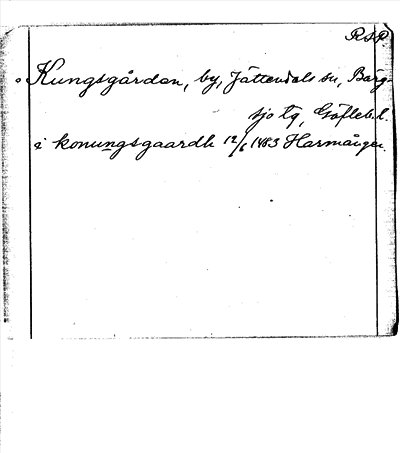 RAP.
Kungsgården, by, Jättendals sn, Berg-
sjo tg, Gäfleb. l.
i konungsgaardh 12/6 1483 Harmånger.